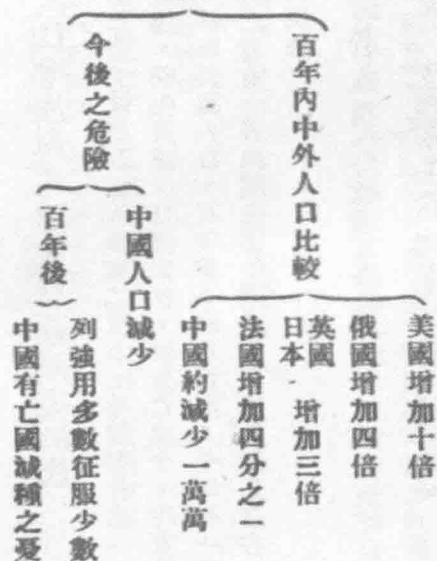 百年內中外人口比較
美國增加十倍
俄國增加四倍
英國
日本
增加三倍
法國增加四分之一
中國約減少一萬萬
今後之危險
中國人口減少
百年後
列強用多數征服少數
中國有亡國滅種之憂